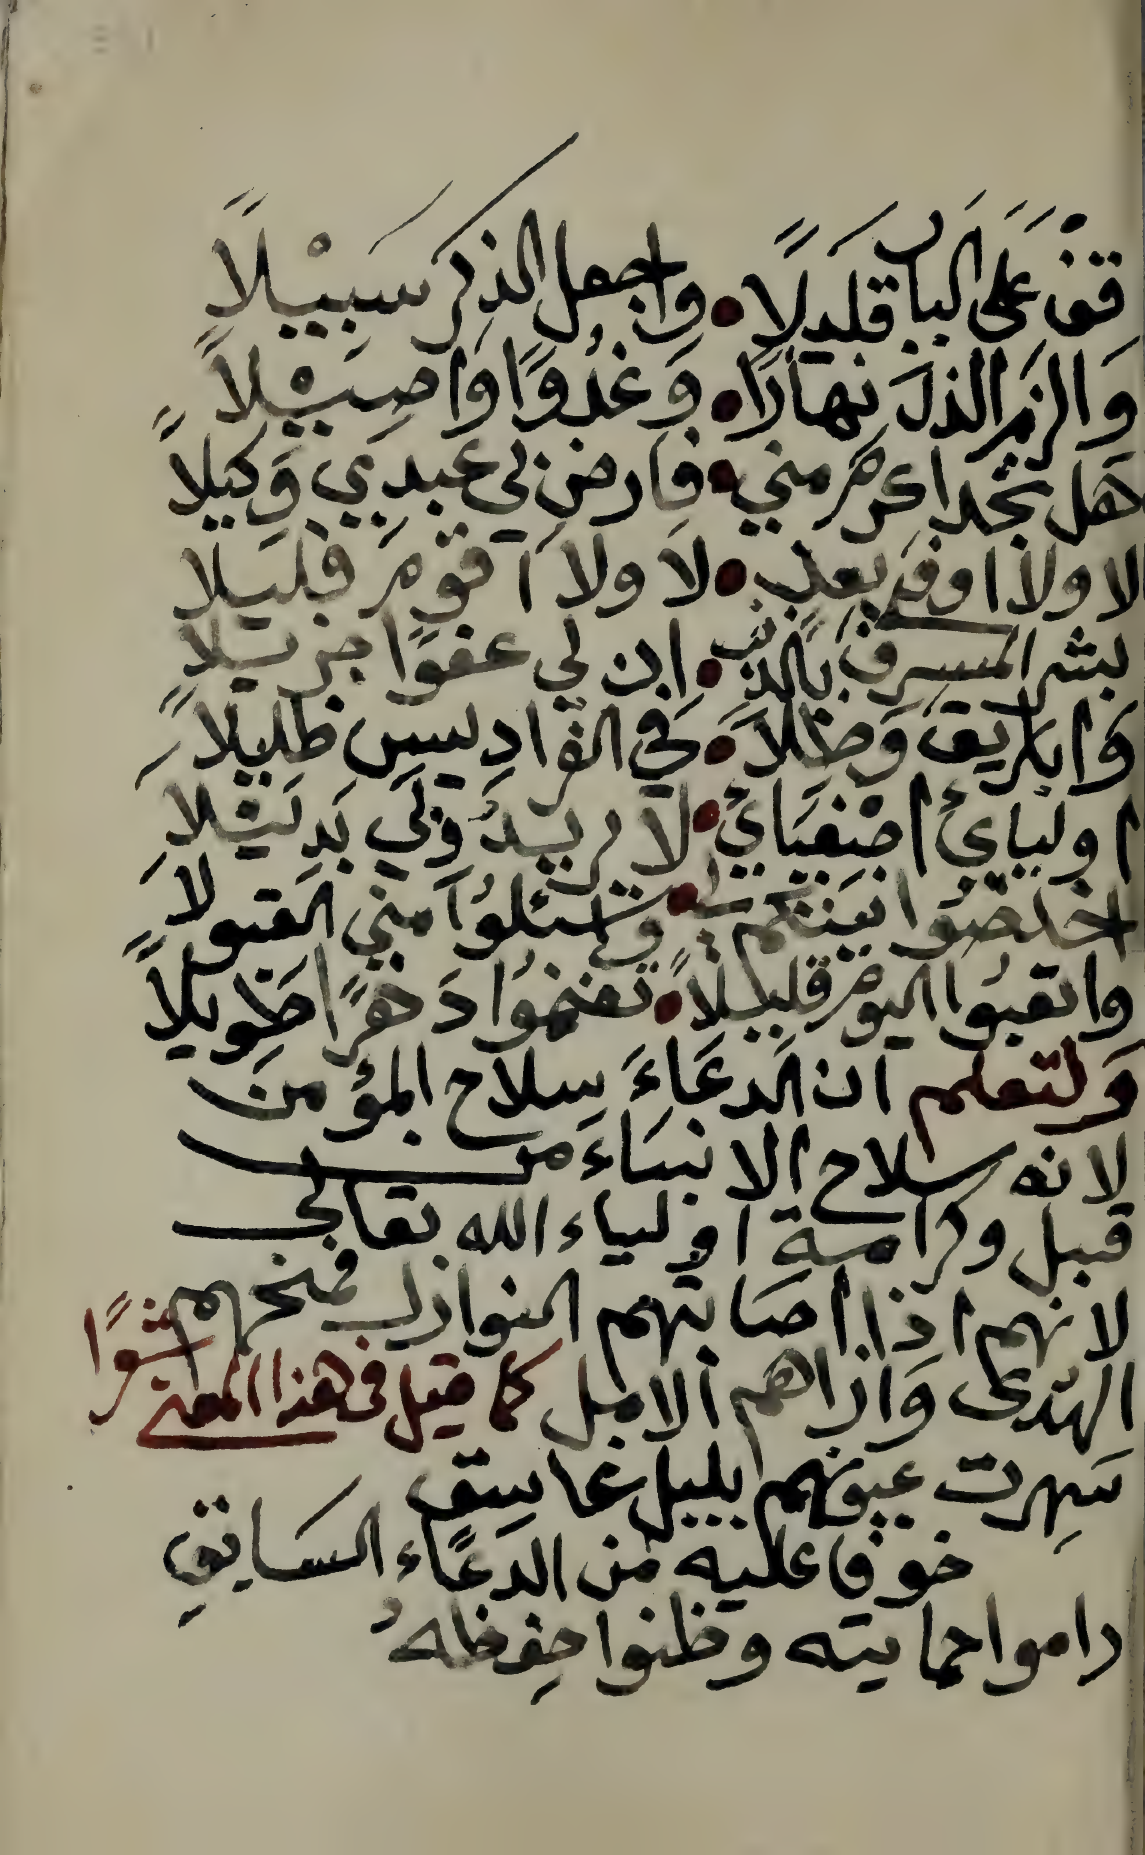 قفْ عَلَى البابِ قليلًا • واجعل الذِكر سَبِيْلًا
وَالزَم الذلَ نهارًا • وَغُدُوًا وَاصِيْلًا
هَل تجد اكرم مني • فَارضَ لي عبدِي وَكيلاً
لا ولا اوفى بعهد • لا ولا اقوَم قليلا
بشر المسرف بالذنب • ان لي عفوًا جزيلا
وَاباريق وَظلاً • في الفراديس ظليلاً
اوليايَ اصْفيَايَ • لا نريد ولي بَدِيْلا
اخلصُوا نيتكم لي • وسئلوُا مني القبولا
واتعبوُا اليوم قليلاً • تغنموُا دَهرًا طَويلاً
وَلتعلم ان الدعَاءَ سِلاح المؤمن
لانه سلاح الانبيَاءَ من
قبل وكرامة اولياء الله تعالى
لانهم اذا اصَابتهم النوازل فمنحهم
الهدى وَازاهم الامل كما قيل في هذا المعنى شعرًا
سَهِرت عيونهم بليل غاسِق
خوفا عليه من الدعَاء السَابِقِ
داموا حمايته وظنوا حِفظهُ